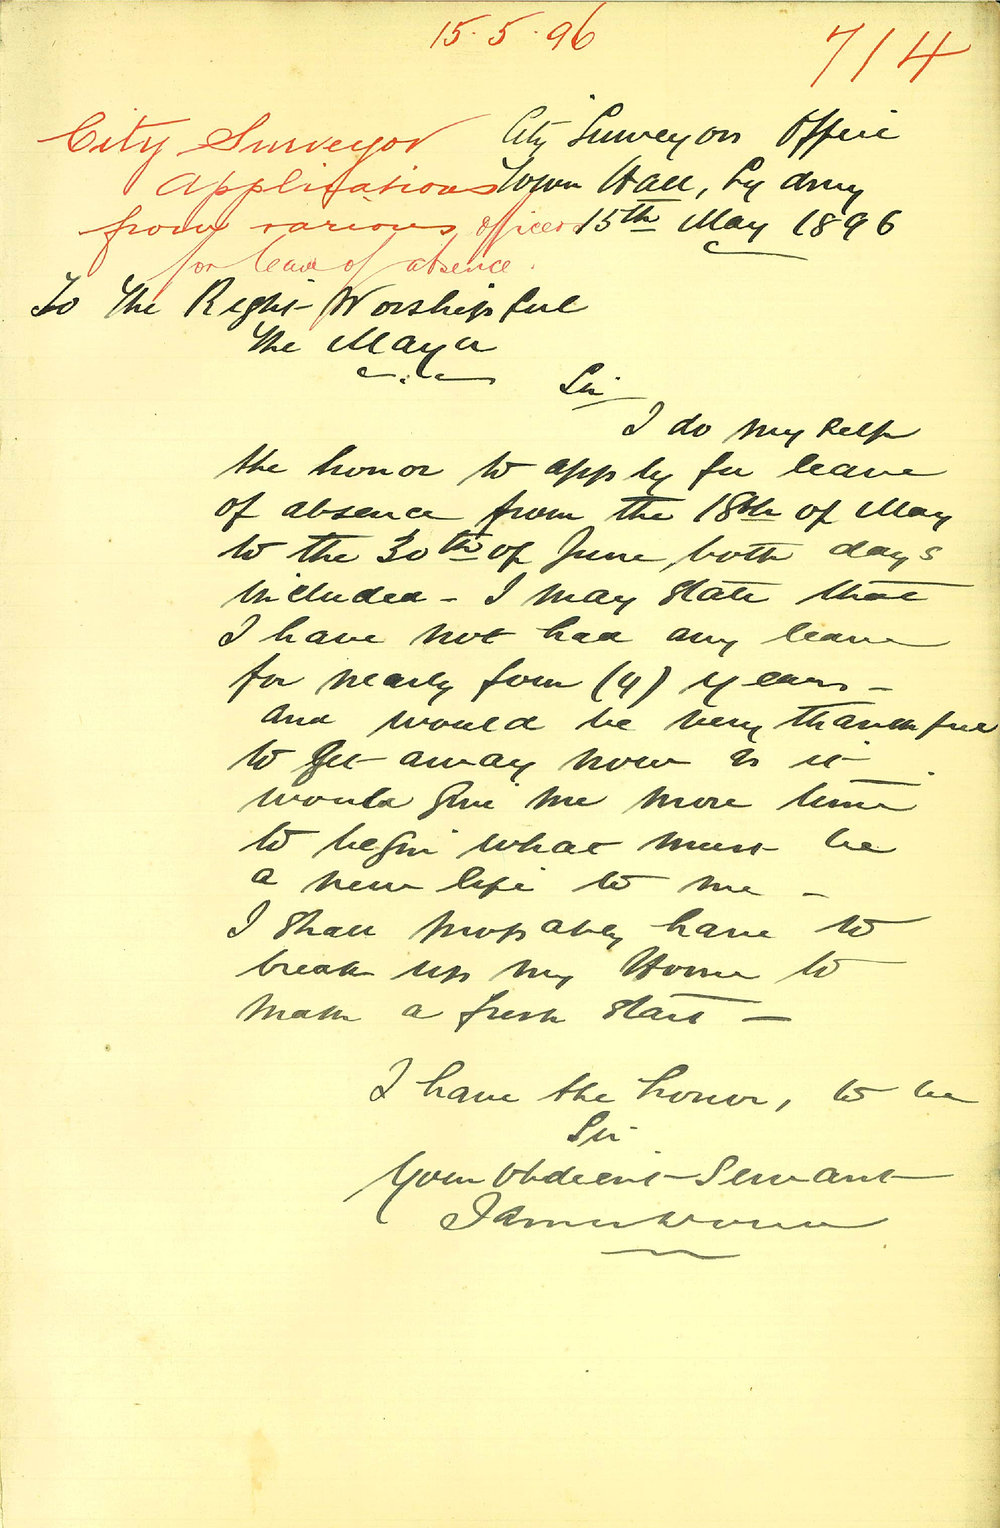 15.5.96
714
City Surveyor
Applications
from various officers
for leave of absence.
City Surveyors Office
Town Hall, Sydney
15th May 1896
To The Right Worshipful
The Mayor
Sir
I do myself
the honor to apply for leave
of absence from the 18th of May
to the 30th of June, both days
included - I may state that
I have not had any leave
for nearly four (4) years -
and would be very thankful
to get away now as it
would give me more time
to begin what must be
a new life to me -
I shall probably have to
break up my Home to
make a fresh start -
I have the honor, to be
Sir
Your Obdient Servant
James